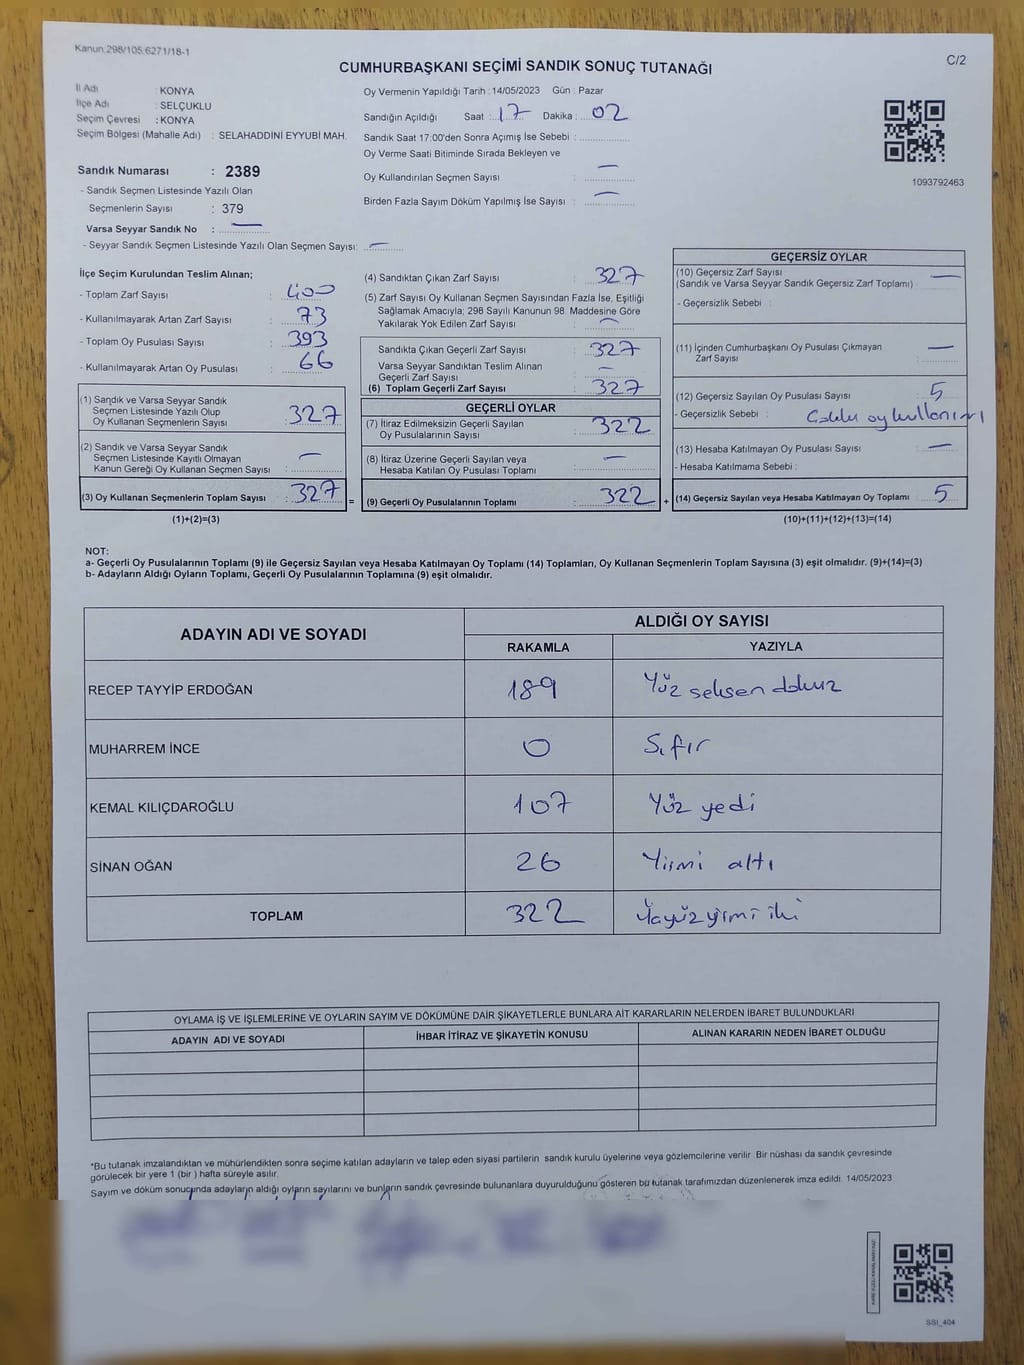 Kanun:298/105,6271/18-1
C/2
CUMHURBAŞKANI SEÇİMİ SANDIK SONUÇ TUTANAĞI
İl Adı : KONYA
İlçe Adı : SELÇUKLU
Seçim Çevresi : KONYA
Seçim Bölgesi (Mahalle Adı) : SELAHADDİNİ EYYUBİ MAH.
Oy Vermenin Yapıldığı Tarih : 14/05/2023 Gün : Pazar
Sandığın Açıldığı Saat : 17 Dakika : 02
Sandık Saat 17:00'den Sonra Açımış İse Sebebi :
Oy Verme Saati Bitiminde Sırada Bekleyen ve
Oy Kullandırılan Seçmen Sayısı : —
Birden Fazla Sayım Döküm Yapılmış İse Sayısı : —
1093792463
Sandık Numarası : 2389
- Sandık Seçmen Listesinde Yazılı Olan
Seçmenlerin Sayısı : 379
Varsa Seyyar Sandık No : —
- Seyyar Sandık Seçmen Listesinde Yazılı Olan Seçmen Sayısı: —
İlçe Seçim Kurulundan Teslim Alınan;
- Toplam Zarf Sayısı : 400
- Kullanılmayarak Artan Zarf Sayısı : 73
- Toplam Oy Pusulası Sayısı : 393
- Kullanılmayarak Artan Oy Pusulası : 66
(1) Sandık ve Varsa Seyyar Sandık
Seçmen Listesinde Yazılı Olup
Oy Kullanan Seçmenlerin Sayısı : 327
(2) Sandık ve Varsa Seyyar Sandık
Seçmen Listesinde Kayıtlı Olmayan
Kanun Gereği Oy Kullanan Seçmen Sayısı : —
(3) Oy Kullanan Seçmenlerin Toplam Sayısı : 327 =
(1)+(2)=(3)
(4) Sandıktan Çıkan Zarf Sayısı : 327
(5) Zarf Sayısı Oy Kullanan Seçmen Sayısından Fazla İse, Eşitliği
Sağlamak Amacıyla; 298 Sayılı Kanunun 98. Maddesine Göre
Yakılarak Yok Edilen Zarf Sayısı : —
Sandıkta Çıkan Geçerli Zarf Sayısı : 327
Varsa Seyyar Sandıktan Teslim Alınan
Geçerli Zarf Sayısı : —
(6) Toplam Geçerli Zarf Sayısı : 327
GEÇERLİ OYLAR
(7) İtiraz Edilmeksizin Geçerli Sayılan
Oy Pusulalarının Sayısı : 322
(8) İtiraz Üzerine Geçerli Sayılan veya
Hesaba Katılan Oy Pusulası Toplamı : —
(9) Geçerli Oy Pusulalarının Toplamı : 322 +
GEÇERSİZ OYLAR
(10) Geçersiz Zarf Sayısı —
(Sandık ve Varsa Seyyar Sandık Geçersiz Zarf Toplamı) :
- Geçersizlik Sebebi :
(11) İçinden Cumhurbaşkanı Oy Pusulası Çıkmayan —
Zarf Sayısı :
(12) Geçersiz Sayılan Oy Pusulası Sayısı : 5
- Geçersizlik Sebebi : oy kullanımı
(13) Hesaba Katılmayan Oy Pusulası Sayısı : —
- Hesaba Katılmama Sebebi :
(14) Geçersiz Sayılan veya Hesaba Katılmayan Oy Toplamı : 5
(10)+(11)+(12)+(13)=(14)
NOT:
a- Geçerli Oy Pusulalarının Toplamı (9) ile Geçersiz Sayılan veya Hesaba Katılmayan Oy Toplamı (14) Toplamları, Oy Kullanan Seçmenlerin Toplam Sayısına (3) eşit olmalıdır. (9)+(14)=(3)
b- Adayların Aldığı Oyların Toplamı, Geçerli Oy Pusulalarının Toplamına (9) eşit olmalıdır.
ADAYIN ADI VE SOYADI
ALDIĞI OY SAYISI
RAKAMLA YAZIYLA
RECEP TAYYİP ERDOĞAN 189 Yüz seksen dokuz
MUHARREM İNCE 0 Sıfır
KEMAL KILIÇDAROĞLU 107 Yüz yedi
SİNAN OĞAN 26 Yirmi altı
TOPLAM 322 Üçyüzyirmi iki
OYLAMA İŞ VE İŞLEMLERİNE VE OYLARIN SAYIM VE DÖKÜMÜNE DAİR ŞİKAYETLERLE BUNLARA AİT KARARLARIN NELERDEN İBARET BULUNDUKLARI
ADAYIN ADI VE SOYADI İHBAR İTİRAZ VE ŞİKAYETİN KONUSU ALINAN KARARIN NEDEN İBARET OLDUĞU
*Bu tutanak imzalandıktan ve mühürlendikten sonra seçime katılan adayların ve talep eden siyasi partilerin sandık kurulu üyelerine veya gözlemcilerine verilir. Bir nüshası da sandık çevresinde
görülecek bir yere 1 (bir ) hafta süreyle asılır.
Sayım ve döküm sonucunda adayların aldığı oyların sayılarını ve bunların sandık çevresinde bulunanlara duyurulduğunu gösteren bu tutanak tarafımızdan düzenlenerek imza edildi. 14/05/2023
SSI_404